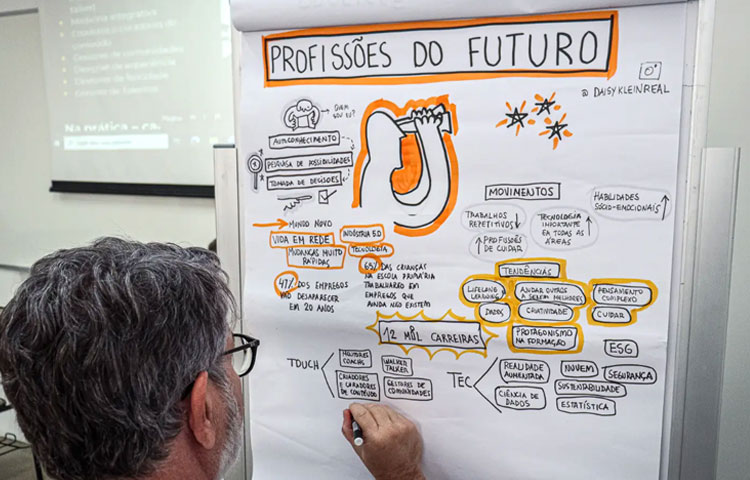 PROFISSÕES DO FUTURO
@ DAISYKLEINREAL
QUEM
SOU EU?
AUTOCONHECIMENTO
PESQUISA DE POSSIBILIDADES
TOMADA DE DECISÕES
MUNDO NOVO
VIDA EM REDE
INDÚSTRIA 5.0
MUDANÇAS MUITO
RÁPIDAS
TECNOLOGIA
47% DOS EMPREGOS
VÃO DESAPARECER
EM 20 ANOS
65% DAS CRIANÇAS
NA ESCOLA PRIMÁRIA
TRABALHARÃO EM
EMPREGOS QUE
AINDA NÃO EXISTEM
MOVIMENTOS
TRABALHOS
REPETITIVOS
TECNOLOGIA
IMPORTANTE
EM TODAS AS
ÁREAS
HABILIDADES
SÓCIO-EMOCIONAIS
PROFISSÕES
DE CUIDAR
TENDÊNCIAS
LIFELONG
LEARNING
AJUDAR OUTROS
A SEREM MELHORES
PENSAMENTO
COMPLEXO
DADOS
CRIATIVIDADE
CUIDAR
PROTAGONISMO
NA FORMAÇÃO
12 MIL CARREIRAS
TOUCH
MENTORES
COACHS
WALKER
TALKER
CRIADORES
E CURADORES
DE CONTEÚDO
GESTORES DE
COMUNIDADES
TEC
REALIDADE
AUMENTADA
NUVEM
ESG
SEGURANÇA
SUSTENTABILIDADE
CIÊNCIA DE
DADOS
ESTATÍSTICA